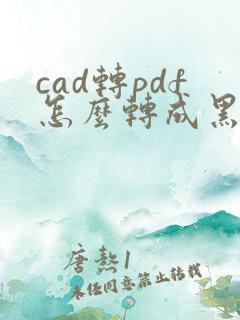 cad轉pdf
怎麼轉成黑
唐熱1
未經同意禁止轉載